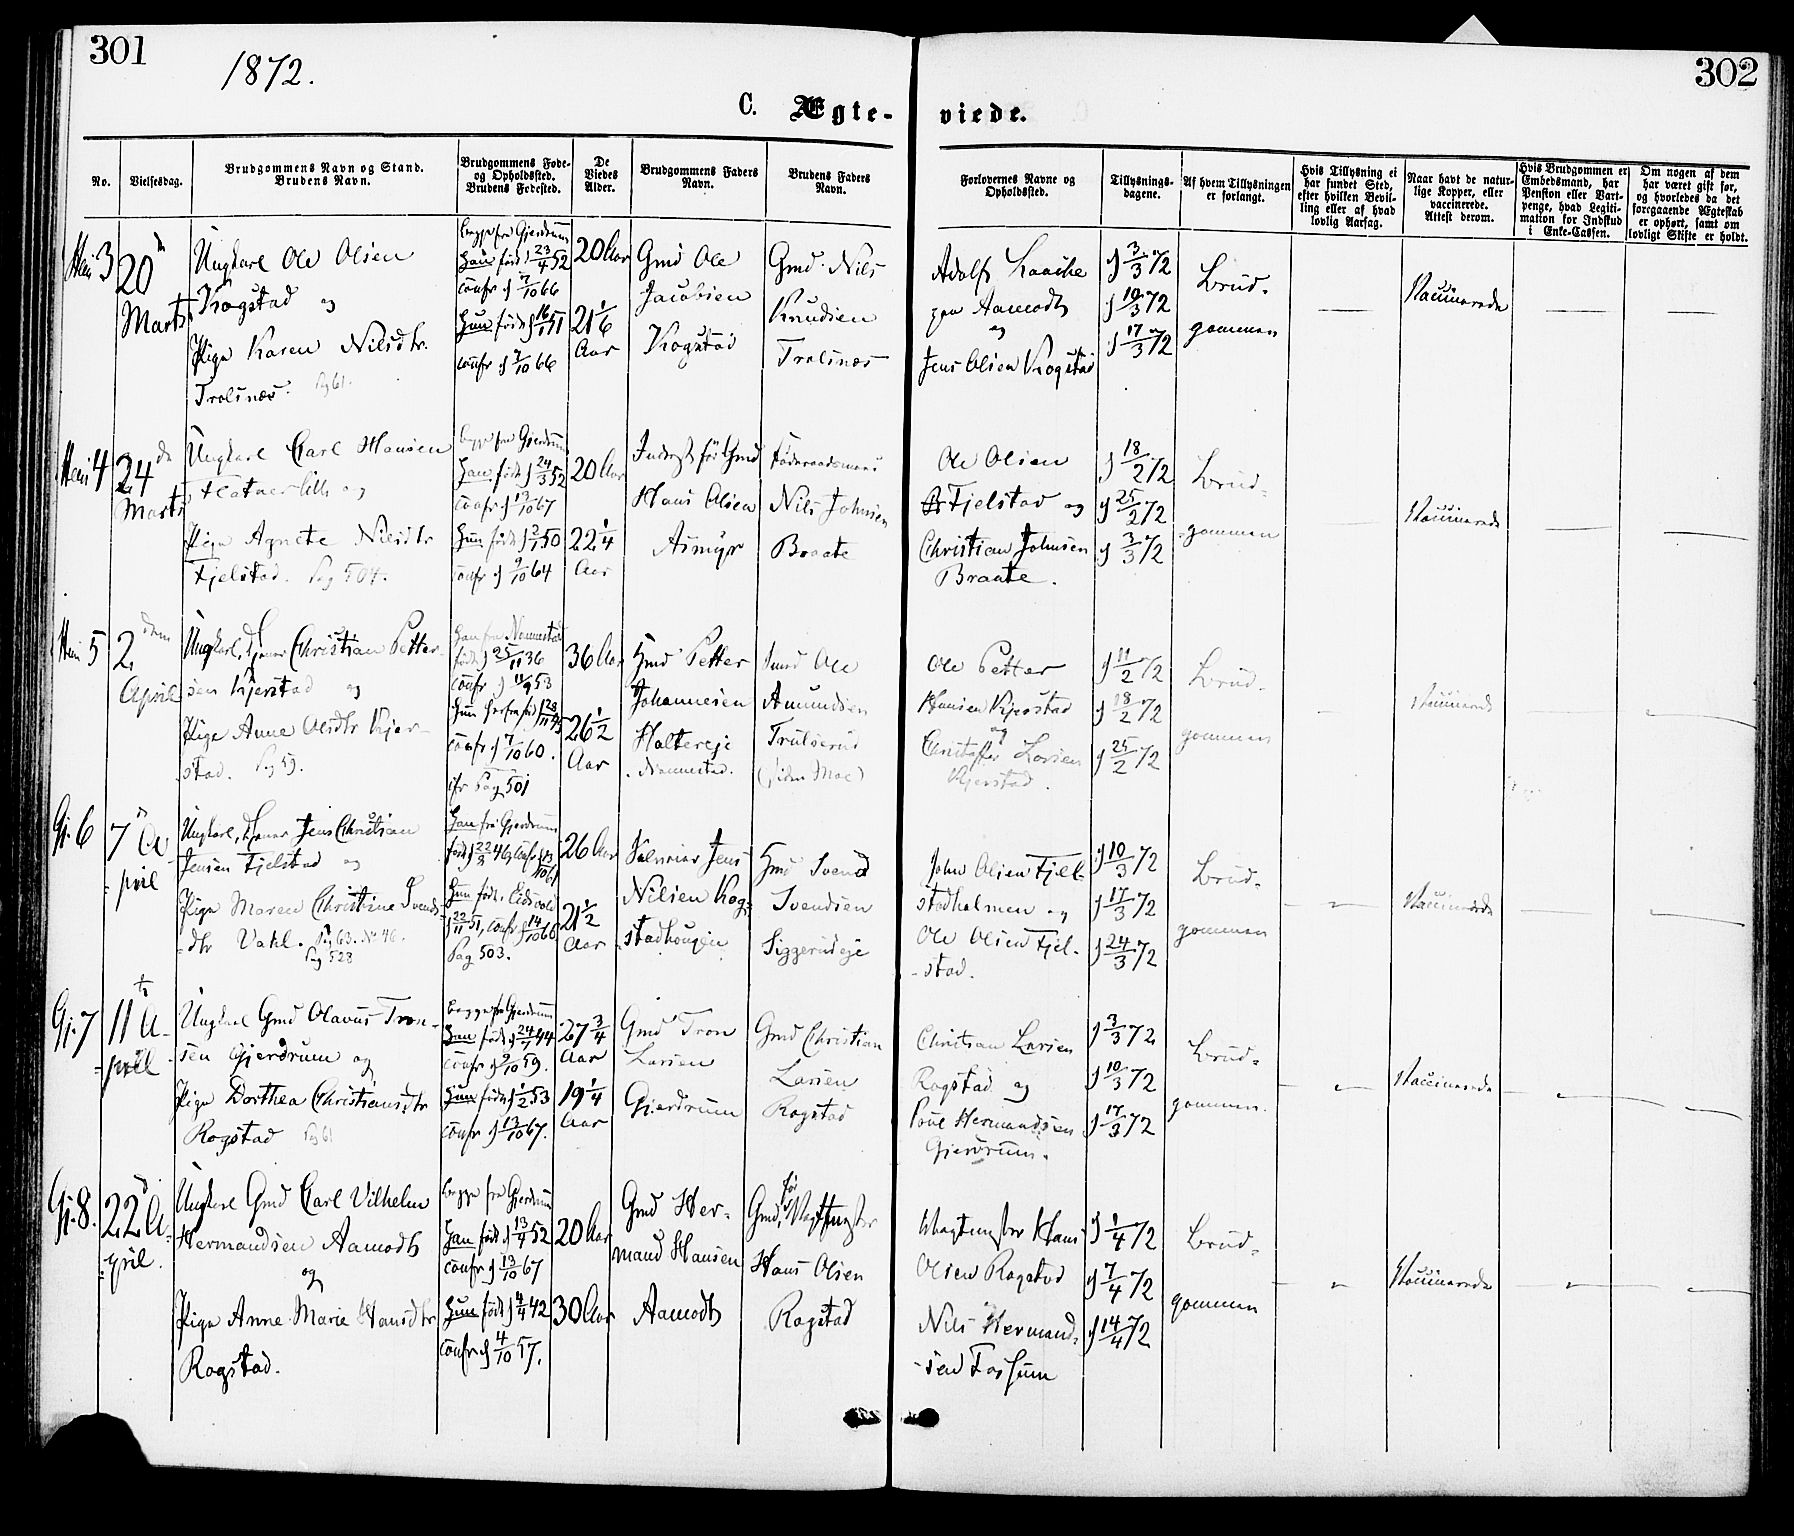 301
1872.
302
C. Ægte-
viede.
No.
Vielsesdag.
Brudgommens Navn og Stand.
Brudens Navn.
Brudgommens Føde-
og Opholdssted.
Brudens Fødested.
De
Viedes
Alder.
Brudgommens Faders
Navn.
Brudens Faders
Navn.
Forlovernes Navne og
Opholdssted.
Tillysnings-
dagene.
Af hvem Tillysningen
er forlangt.
Hvis Tillysning ei
har fundet Sted,
efter hvilken Bevil-
ling eller af hvad
lovlig Aarsag.
Naar havt de natur-
lige Kopper, eller
vaccinerede.
Attest derom.
Hvis Brudgommen er
Embedsmand, har
Pension eller Vart-
penge, hvad Legiti-
mation for Indskud
i Enke-Cassen.
Om nogen af dem
har været gift før,
og hvorledes da det
foregaaende Ægteskab
er ophørt, samt om
lovligt Skifte er holdt.
3
20
Marts
Ungkarl Ole Olsen
Kogstad og
Pige Karen Nilsdtr.
Trolsnæs. Pag 61.
begge fra Gjerdrum
Han født 23/4 52
confr 7/10 66
Hun født 16/1 51
confr 7/10 66
20 Aar
21 1/6
Aar
Gmd Ole
Jacobsen
Kogstad
Gmd. Nils
Knudsen
Trolsnæs
Adolf Laache
paa Aamodt
og
Jens Olsen Kogstad
3/3 72
10/3 72
17/3 72
Brud-
gommen
Vaccinerede
4
24de
Marts
Ungkarl Carl Hansen
og
Pige Agnete Nilsdtr
Fjelstad. Pag 504.
begge fra Gjerdrum
Han født 24/3 52
confr 13/10 67
Hun født 2/1 50
confr 9/10 64
20 Aar
22 1/4
Aar
Hans Olsen
Asmyr
Føderaadsmand
Nils Johnsen
Braate
Ole Olsen
Fjelstad og
Christian Johnsen
Braate.
18/2 72
25/2 72
3/3 72
Brud-
gommen
Vaccinerede
5
2den
April
Ungkarl, Tjener Christian Petter-
sen Kjerstad og
Pige Anne Olsdtr Kjer-
stad. Pag 59.
Han fra Nannestad
født 25/11 36
confr 11/9 53
Hun herfra født 28/11 45
confr 7/10 60.
Pag 501
36 Aar
26 1/2
Aar
Gmd Petter
Johannesen
Holtereie
Nannestad.
Ole
Amundsen
Trulserud
(siden Moe)
Ole Petter
Hansen Kjerstad
og
Christoffer Larsen
Kjerstad.
11/2 72
18/2 72
25/2 72
Brud-
gommen
Vaccinerede
Gj. 6
7de A-
pril
Ungkarl, Tjener Jens Christian
Jensen Fjelstad og
Pige Maren Christine Svends-
dtr Vahl. Pag 63. No 46.
Pag 528
Han fra Gjerdrum
født 22/8 46, confr 13/10 61
Hun født Eidsvold
22/11 51, confr 14/10 66
Pag 503.
26 Aar
21 1/2
Aar
Jens
Nilsen Kog-
stadhougen
Gmd Svend
Svendsen
Siggerudeje
John Olsen Fjel-
stadholmen og
Ole Olsen Fjel-
stad.
10/3 72
17/3 72
24/3 72
Brud-
gommen
Vaccinerede
Gj. 7
11te A-
pril
Ungkarl Gmd Olavus Tron-
sen Gjerdrum og
Pige Dorthea Christiansdtr
Rogstad Pag 61
begge fra Gjerdrum
Han født 24/7 44
confr 9/10 59.
Hun født 1/2 53
confr 13/10 67.
27 3/4
Aar
19 1/4
Aar
Gmd Tron
Larsen
Gjerdrum
Gmd Christian
Larsen
Rogstad
Christian Larsen
Rogstad og
Poul Hermandsen
Gjerdrum.
3/3 72
10/3 72
17/3 72
Brud-
gommen.
Vaccinerede
Gj. 8.
22d A-
pril.
Ungkarl Gmd Carl Vilhelm
Hermandsen Aamodt
og
Pige Anne Marie Hansdtr
Rogstad.
begge fra Gjerdrum
Han født 13/4 52
confr 13/10 67
Hun født 4/4 42
confr 4/10 57.
20 Aar
30 Aar
Gmd Her-
mand Hansen
Aamodt
Gmd, før Vagtmester
Hans Olsen
Rogstad
Vagtmester Hans
Olsen Rogstad
Nils Hermand-
sen Fossum
1/4 72
7/4 72
14/4 72
Brud-
gommen
Vaccinerede